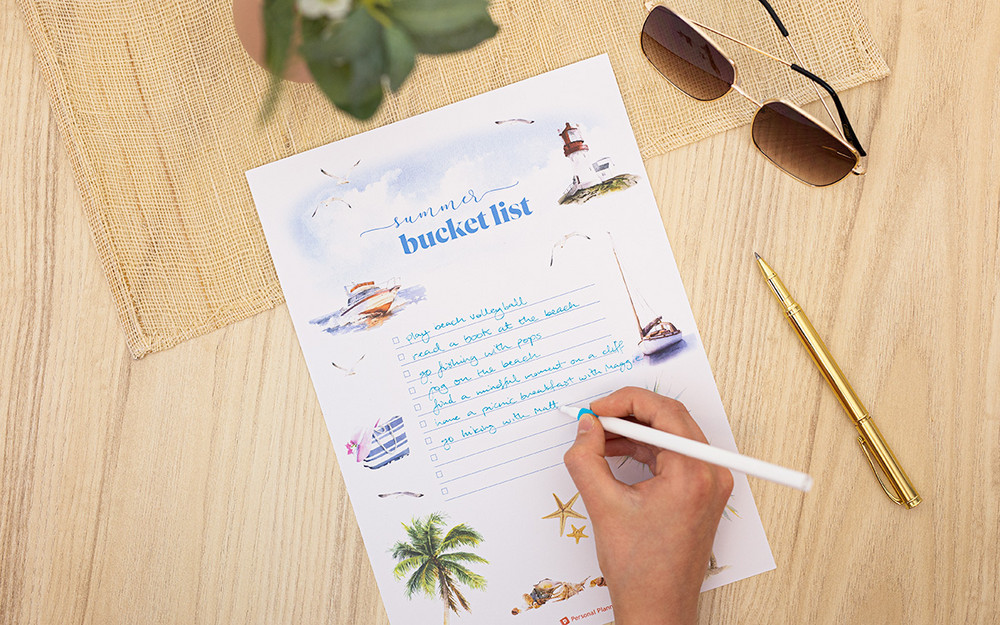 summer
bucket list
play beach volleyball
read a book at the beach
go fishing with pops
jog on the beach
find a mindful moment on a cliff
have a picnic breakfast with Maggie
go hiking with Matt
Personal